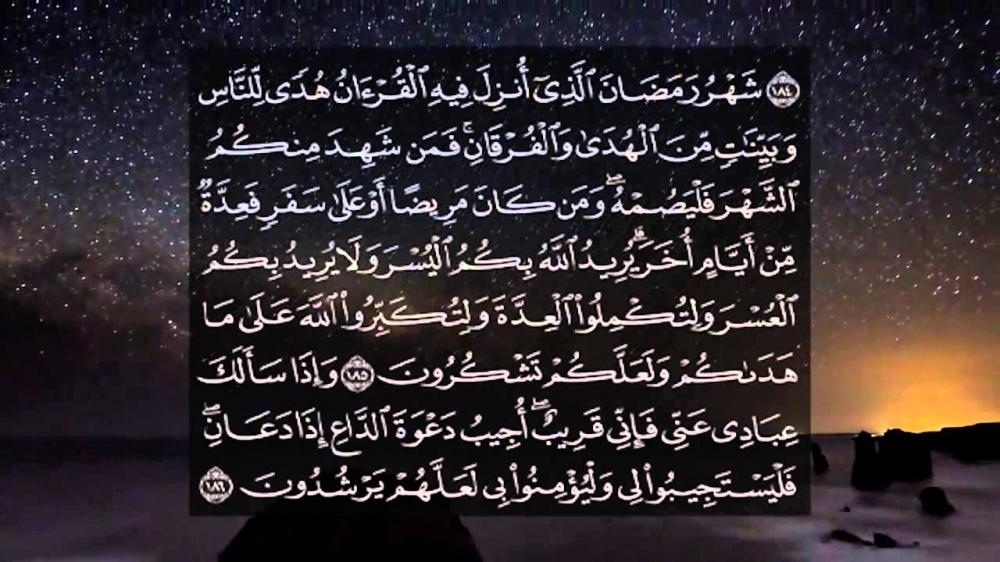 ١٨٤ شَهْرُ رَمَضَانَ ٱلَّذِىٓ أُنزِلَ فِيهِ ٱلْقُرْءَانُ هُدًى لِّلنَّاسِ
وَبَيِّنَٰتٍ مِّنَ ٱلْهُدَىٰ وَٱلْفُرْقَانِ ۚ فَمَن شَهِدَ مِنكُمُ
ٱلشَّهْرَ فَلْيَصُمْهُ ۖ وَمَن كَانَ مَرِيضًا أَوْ عَلَىٰ سَفَرٍ فَعِدَّةٌ
مِّنْ أَيَّامٍ أُخَرَ ۗ يُرِيدُ ٱللَّهُ بِكُمُ ٱلْيُسْرَ وَلَا يُرِيدُ بِكُمُ
ٱلْعُسْرَ وَلِتُكْمِلُوا۟ ٱلْعِدَّةَ وَلِتُكَبِّرُوا۟ ٱللَّهَ عَلَىٰ مَا
هَدَىٰكُمْ وَلَعَلَّكُمْ تَشْكُرُونَ ١٨٥ وَإِذَا سَأَلَكَ
عِبَادِى عَنِّى فَإِنِّى قَرِيبٌ ۖ أُجِيبُ دَعْوَةَ ٱلدَّاعِ إِذَا دَعَانِ ۖ
فَلْيَسْتَجِيبُوا۟ لِى وَلْيُؤْمِنُوا۟ بِى لَعَلَّهُمْ يَرْشُدُونَ ١٨٦